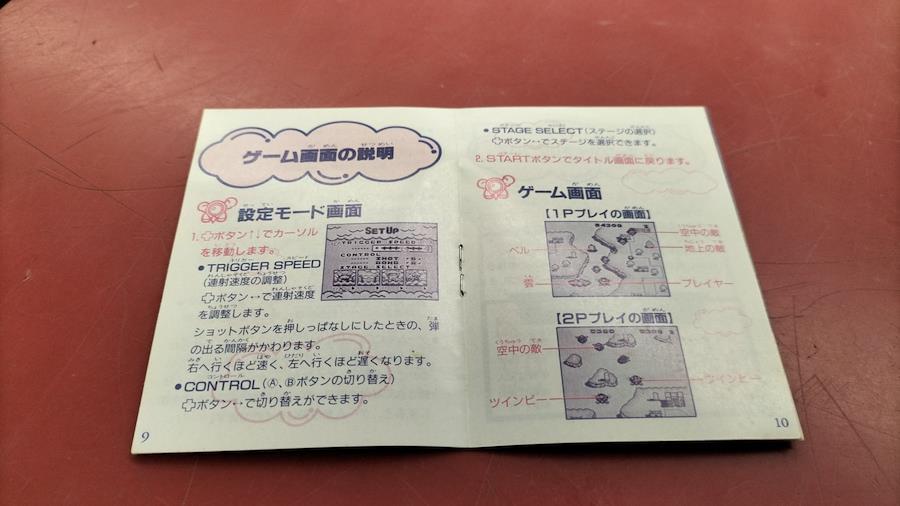 ゲーム画面の説明
設定モード画面
1. ✚ボタン↑↓でカーソル
を移動します。
SET UP
TRIGGER SPEED
CONTROL
SHOT
BOMB
STAGE SELECT
•TRIGGER SPEED
(連射速度の調整)
✚ボタン↔で連射速度
を調整します。
ショットボタンを押しっぱなしにしたときの、弾
の出る間隔がかわります。
右へ行くほど速く、左へ行くほど遅くなります。
•CONTROL(Ⓐ、Ⓑボタンの切り替え)
✚ボタン↔で切り替えができます。
9
•STAGE SELECT(ステージの選択)
✚ボタン↔でステージを選択できます。
2. STARTボタンでタイトル画面に戻ります。
ゲーム画面
【1Pプレイの画面】
空中の敵
ベル
地上の敵
雲
プレイヤー
【2Pプレイの画面】
空中の敵
ツインビー
ツインビー
10